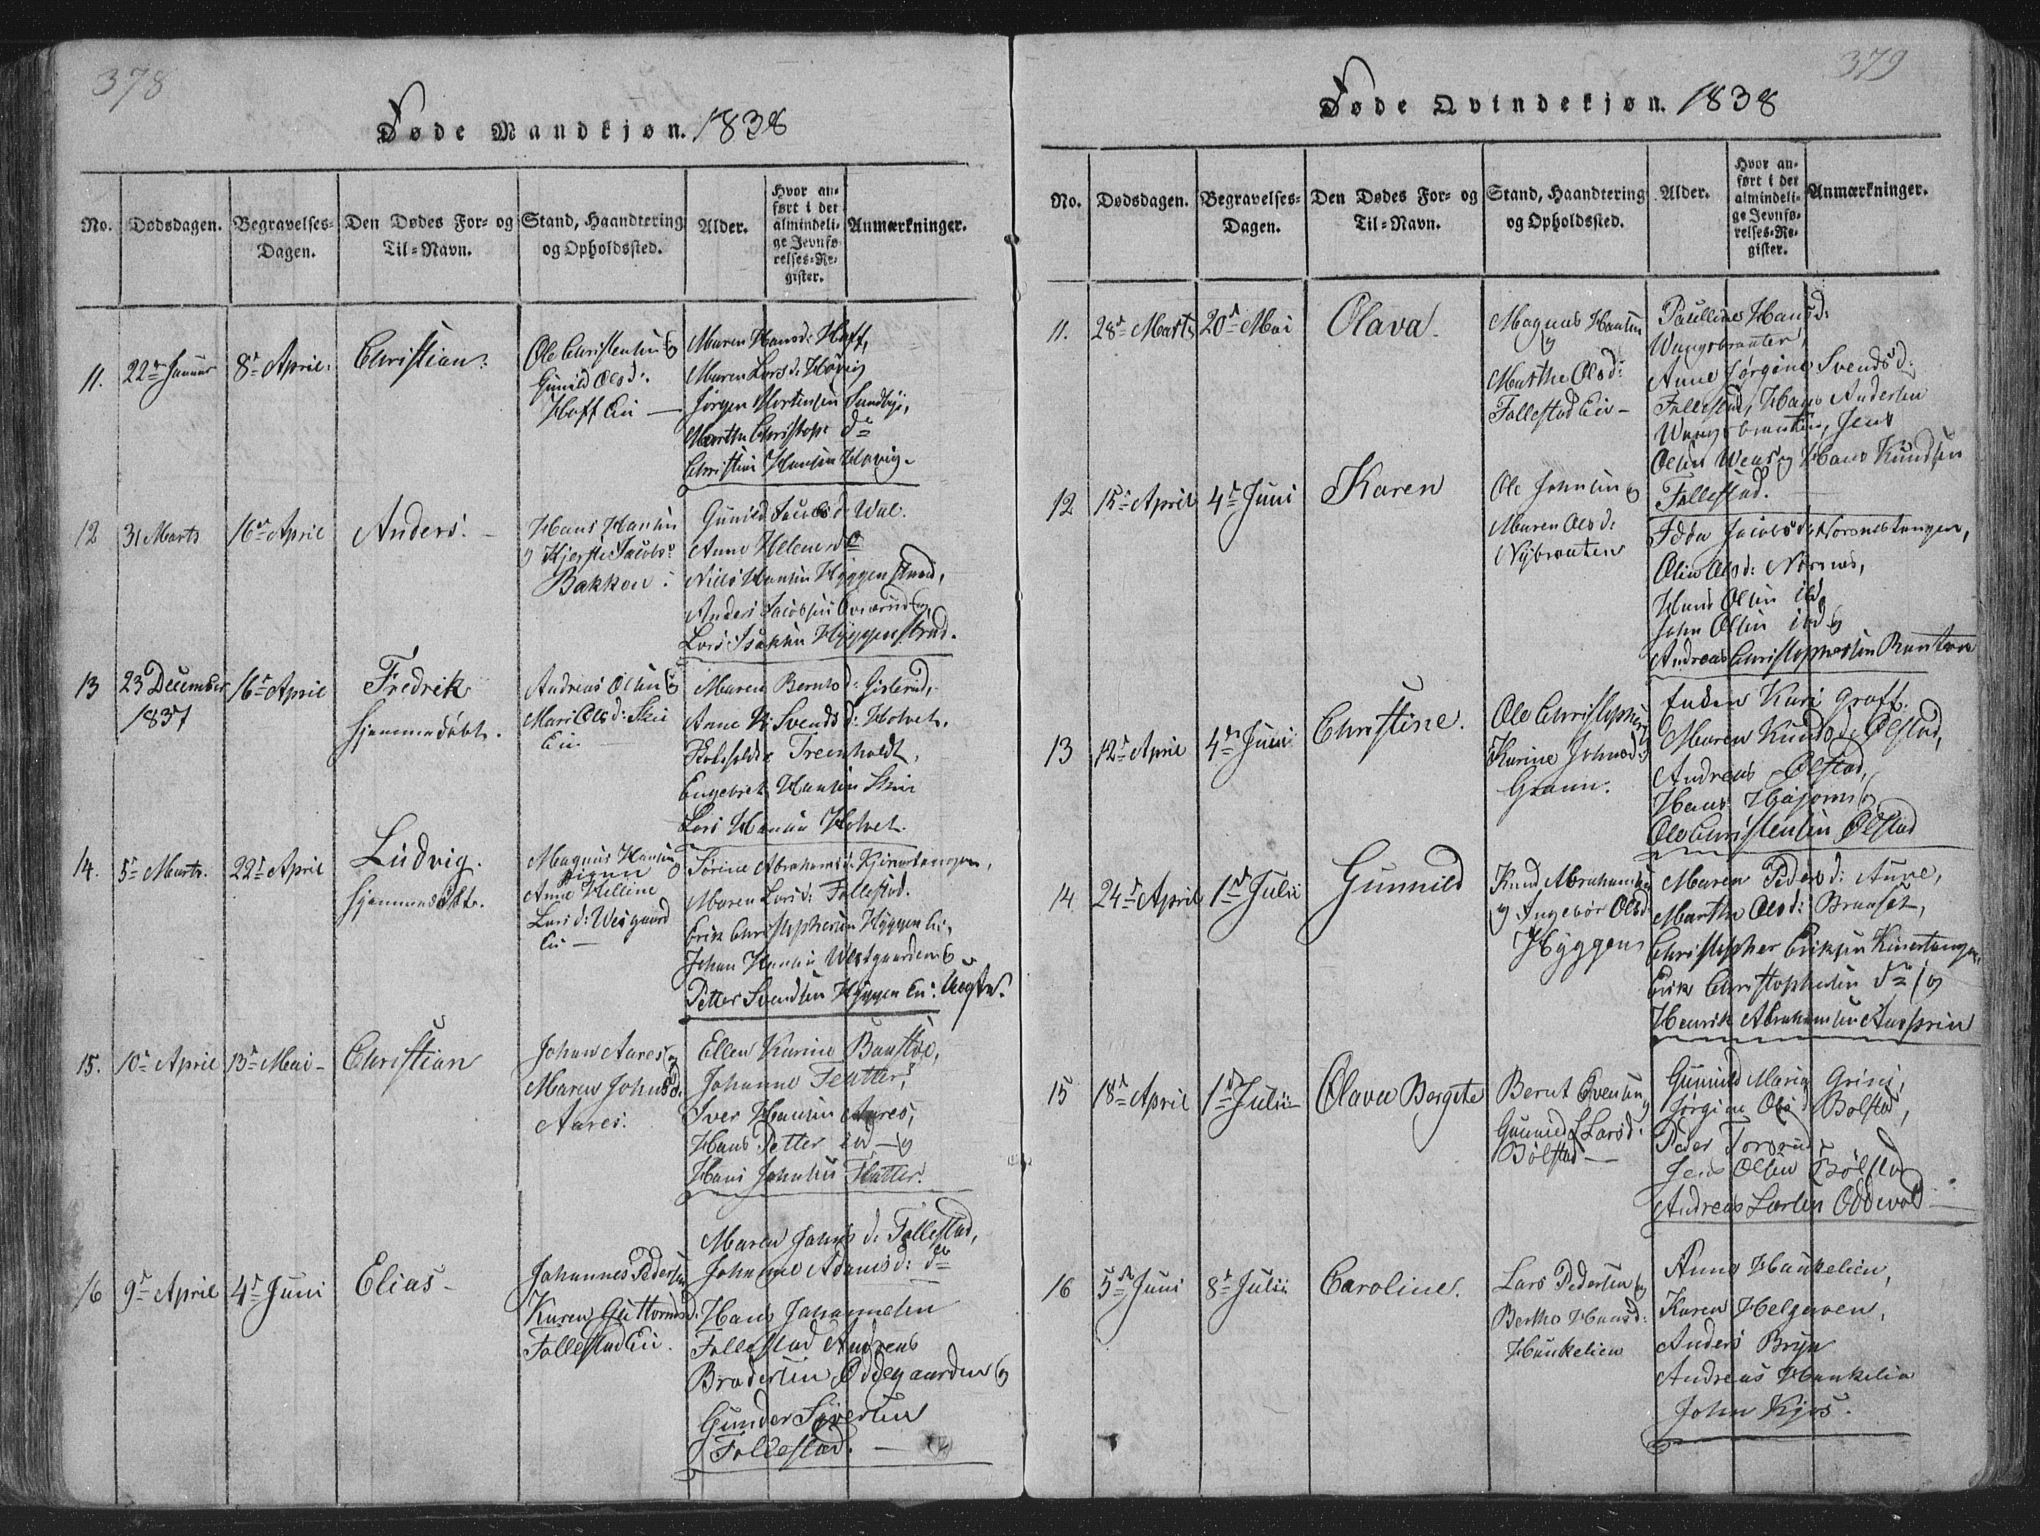 378
Døde Mandkjøn. 1838
No.
Dødsdagen.
Begravelses-
Dagen.
Den Dødes For- og
Til-Navn.
Stand, Haandtering
og Opholdssted.
Alder.
Hvor an-
ført i det
almindeli-
ge Jevnfø-
relses-Re-
gister.
Anmærkninger.
11.
22de Januar
8de April.
Christian.
Ole Christensen og
Gunild Olsd:
Hoff Ei —
Maren Hansd: Hoff,
Maren Larsd: Høvig
Jørgen Mortensen Sundbye,
Marthe Christoph: do
Christian Hansen Høvig.
12
31 Marts
16de April
Anders. -
Hans Hansen
og Kjersti Jacobs:
Bakken.
Gunild Jacobsd: Wal.
Anne Helene do
Nils Hansen Hyggenstrand,
Anders Jacobsen og
Lars Isaksen Hyggenstrand.
13
23 December
1837
16de April
Fredrik
hjemmedøbt.
Andreas Olsen og
Mari Olsd: Skie
Ei —
Maren Berntsd: Gislerud,
Anne K: Svendsd: Holvet.
Treenholdt,
Engebret Hansen Skie
Lars Hansen Holvet.
14.
5te Marts.
22de April
Ludvig.
hjemmedøbt.
Magnus Hansen
og
Anne Helene
Larsd: Wesgaard
Ei —
Sørine Abrahamsd: Kinertangen,
Maren Larsd: Follestad.
Erik Christophersen Hyggen Ei,
Johan Hansen Westgaarden og
Petter Svendsen Hyggen Ei.
15.
10de April
13de Mai -
Christian
Johan Aares og
Maren Johnsd:
Aares.
Ellen Karine Baastøe,
Johanne Flatter,
Iver Hansen Aares,
Hans Petter ibd — og
Hans Johnsen Flatter.
16
9de April
4de Juni
Elias -
Johannes Pedersen
Karen Guttormsd:
Follestad Ei.
Maren Johsd: Follestad,
Johanne Adamsd: do
Hans Johannesen
Follestad Andreas
Brodersen Oddegaarden og
Gunder Siversen
Follestad. —
379
Døde Qvindekjøn. 1838
No.
Dødsdagen.
Begravelses-
Dagen.
Den Dødes For- og
Til-Navn.
Stand, Haandtering
og Opholdssted.
Alder.
Hvor an-
ført i det
almindeli-
ge Jevnfø-
relses-Re-
gister.
Anmærkninger.
11.
28de Marts
20de Mai
Olava.
Magnus Hansen
og
Marthe Olsd:
Follestad Ei -
Pauline Hansd:
Wangsbraaten,
Anne Jørgine Svendsd:
Follestad, Hans Andersen
Wangsbraaten, Jens
Olsen Weas og Hans Knudsen
Follestad.
12
15de April
4de Juni
Karen
Ole Johnsen og
Maren Olsd:
Nybraaten
Jacobsd: Norsnestangen,
Olia Olsd: Norsnes,
Hans Olsen ibd,
John Olsen ibd og
Andreas Christophersen Braaten
13
12de April
4de Juni
Christine.
Ole Christophers: og
Karine Johnsd:
Gramm.
Enken Kari Graff.
Maren Knudsd: Ølstad,
Andreas Ølstad,
Hans og
Ole Christensen Ølstad
14
24de April
1ste Julii
Gunnild
Knud Abrahamsen
og Ingebør Olsd:
Hyggen
Maren Pedersd: Aune,
Marthe Olsd: Braaset,
Christopher Eriksen Kinertangen,
Erik Christophersen do og
Henrik Abrahamsen
15
18de April
1ste Julii
Olava Bergete
Bernt Evensen og
Gunnild Larsd.
Bølstad —
Gunnild Maria Grini
Jørgine Olsd: Bølstad,
Peder Torsrud
Jens Olsen Bølstad
Andreas Larsen Oddevold —
16
5te Juni
8de Julii
Caroline.
Lars Pedersen og
Berthe Hansd:
Haukelien
Anne Haukelien,
Karen Helgeren,
Anders Bryn
Andreas Haukelie
John Kjøs.